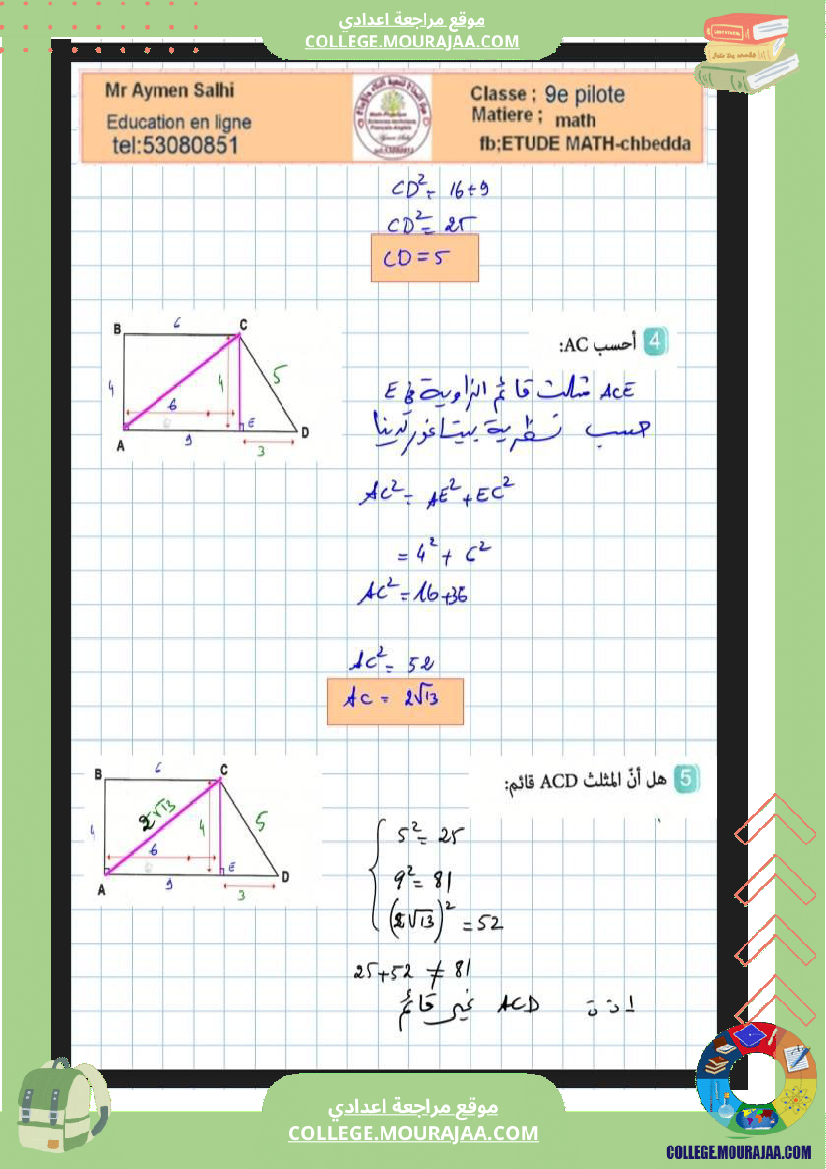 موقع مراجعة اعدادي
COLLEGE.MOURAJAA.COM
Mr Aymen Salhi
Education en ligne
tel:53080851
Classe ; 9e pilote
Matiere ; math
fb;ETUDE MATH-chbedda
CD² = 16+9
CD² = 25
CD = 5
4 أحسب AC:
B 6 C
4 4 5
6
A 9 E D
3
ACE مثلث قائم الزاوية في E
حسب نظرية بيتاغور لدينا
AC² = AE² + EC²
= 4² + 6²
AC² = 16+36
AC² = 52
AC = 2√13
5 هل أنّ المثلث ACD قائم:
B 6 C
4 2√13 4 5
6
A 9 E D
3
5² = 25
9² = 81
(2√13)² = 52
25+52 ≠ 81
اذن ACD غير قائم
موقع مراجعة اعدادي
COLLEGE.MOURAJAA.COM
COLLEGE.MOURAJAA.COM